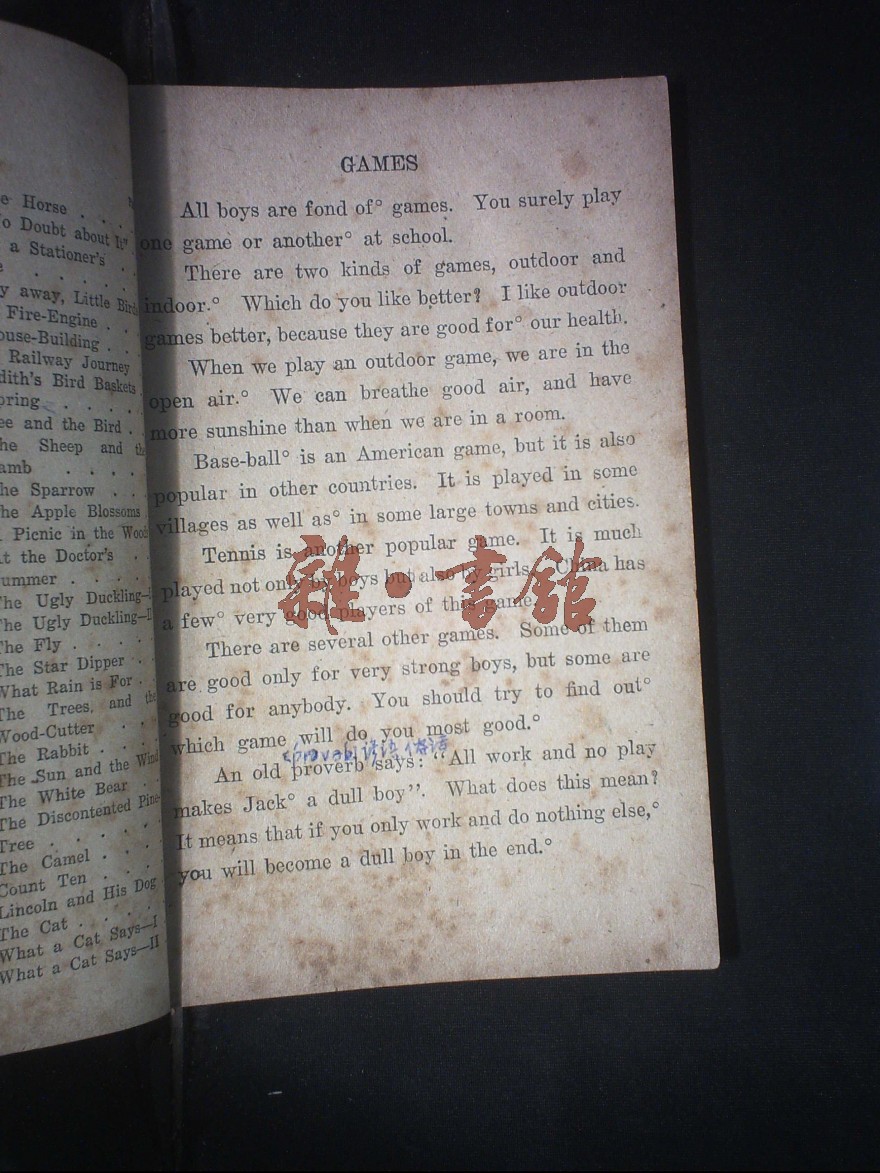 e Horse . . .
o Doubt about It"
a Stationer's
y away, Little Bird
Fire-Engine . .
ouse-Building . .
Railway Journey
dith's Bird Baskets
pring . . . . .
ee and the Bird . .
he Sheep and the
amb . . . .
he Sparrow . . .
he Apple Blossoms
Picnic in the Wood
t the Doctor's .
ummer . . . . .
The Ugly Duckling—I
The Ugly Duckling—II
The Fly . . . . .
The Star Dipper . .
What Rain is For . .
The Trees, and the
Wood-Cutter . .
The Rabbit . . . .
The Sun and the Wind
The White Bear . .
The Discontented Pine-
Tree . . . . . .
The Camel . . . .
Count Ten . . . .
Lincoln and His Dog
The Cat . . . . .
What a Cat Says—I
What a Cat Says—II
GAMES
All boys are fond of° games. You surely play
one game or another° at school.
There are two kinds of games, outdoor and
indoor.° Which do you like better? I like outdoor
games better, because they are good for° our health.
When we play an outdoor game, we are in the
open air.° We can breathe good air, and have
more sunshine than when we are in a room.
Base-ball° is an American game, but it is also
popular in other countries. It is played in some
villages as well as° in some large towns and cities.
Tennis is another popular game. It is much
played not only by boys but also by girls. China has
a few° very good players of this game.
There are several other games. Some of them
are good only for very strong boys, but some are
good for anybody. You should try to find out°
which game will do you most good.°
An old proverb says: "All work and no play
makes Jack° a dull boy". What does this mean?
It means that if you only work and do nothing else,°
you will become a dull boy in the end.°
雜·書館